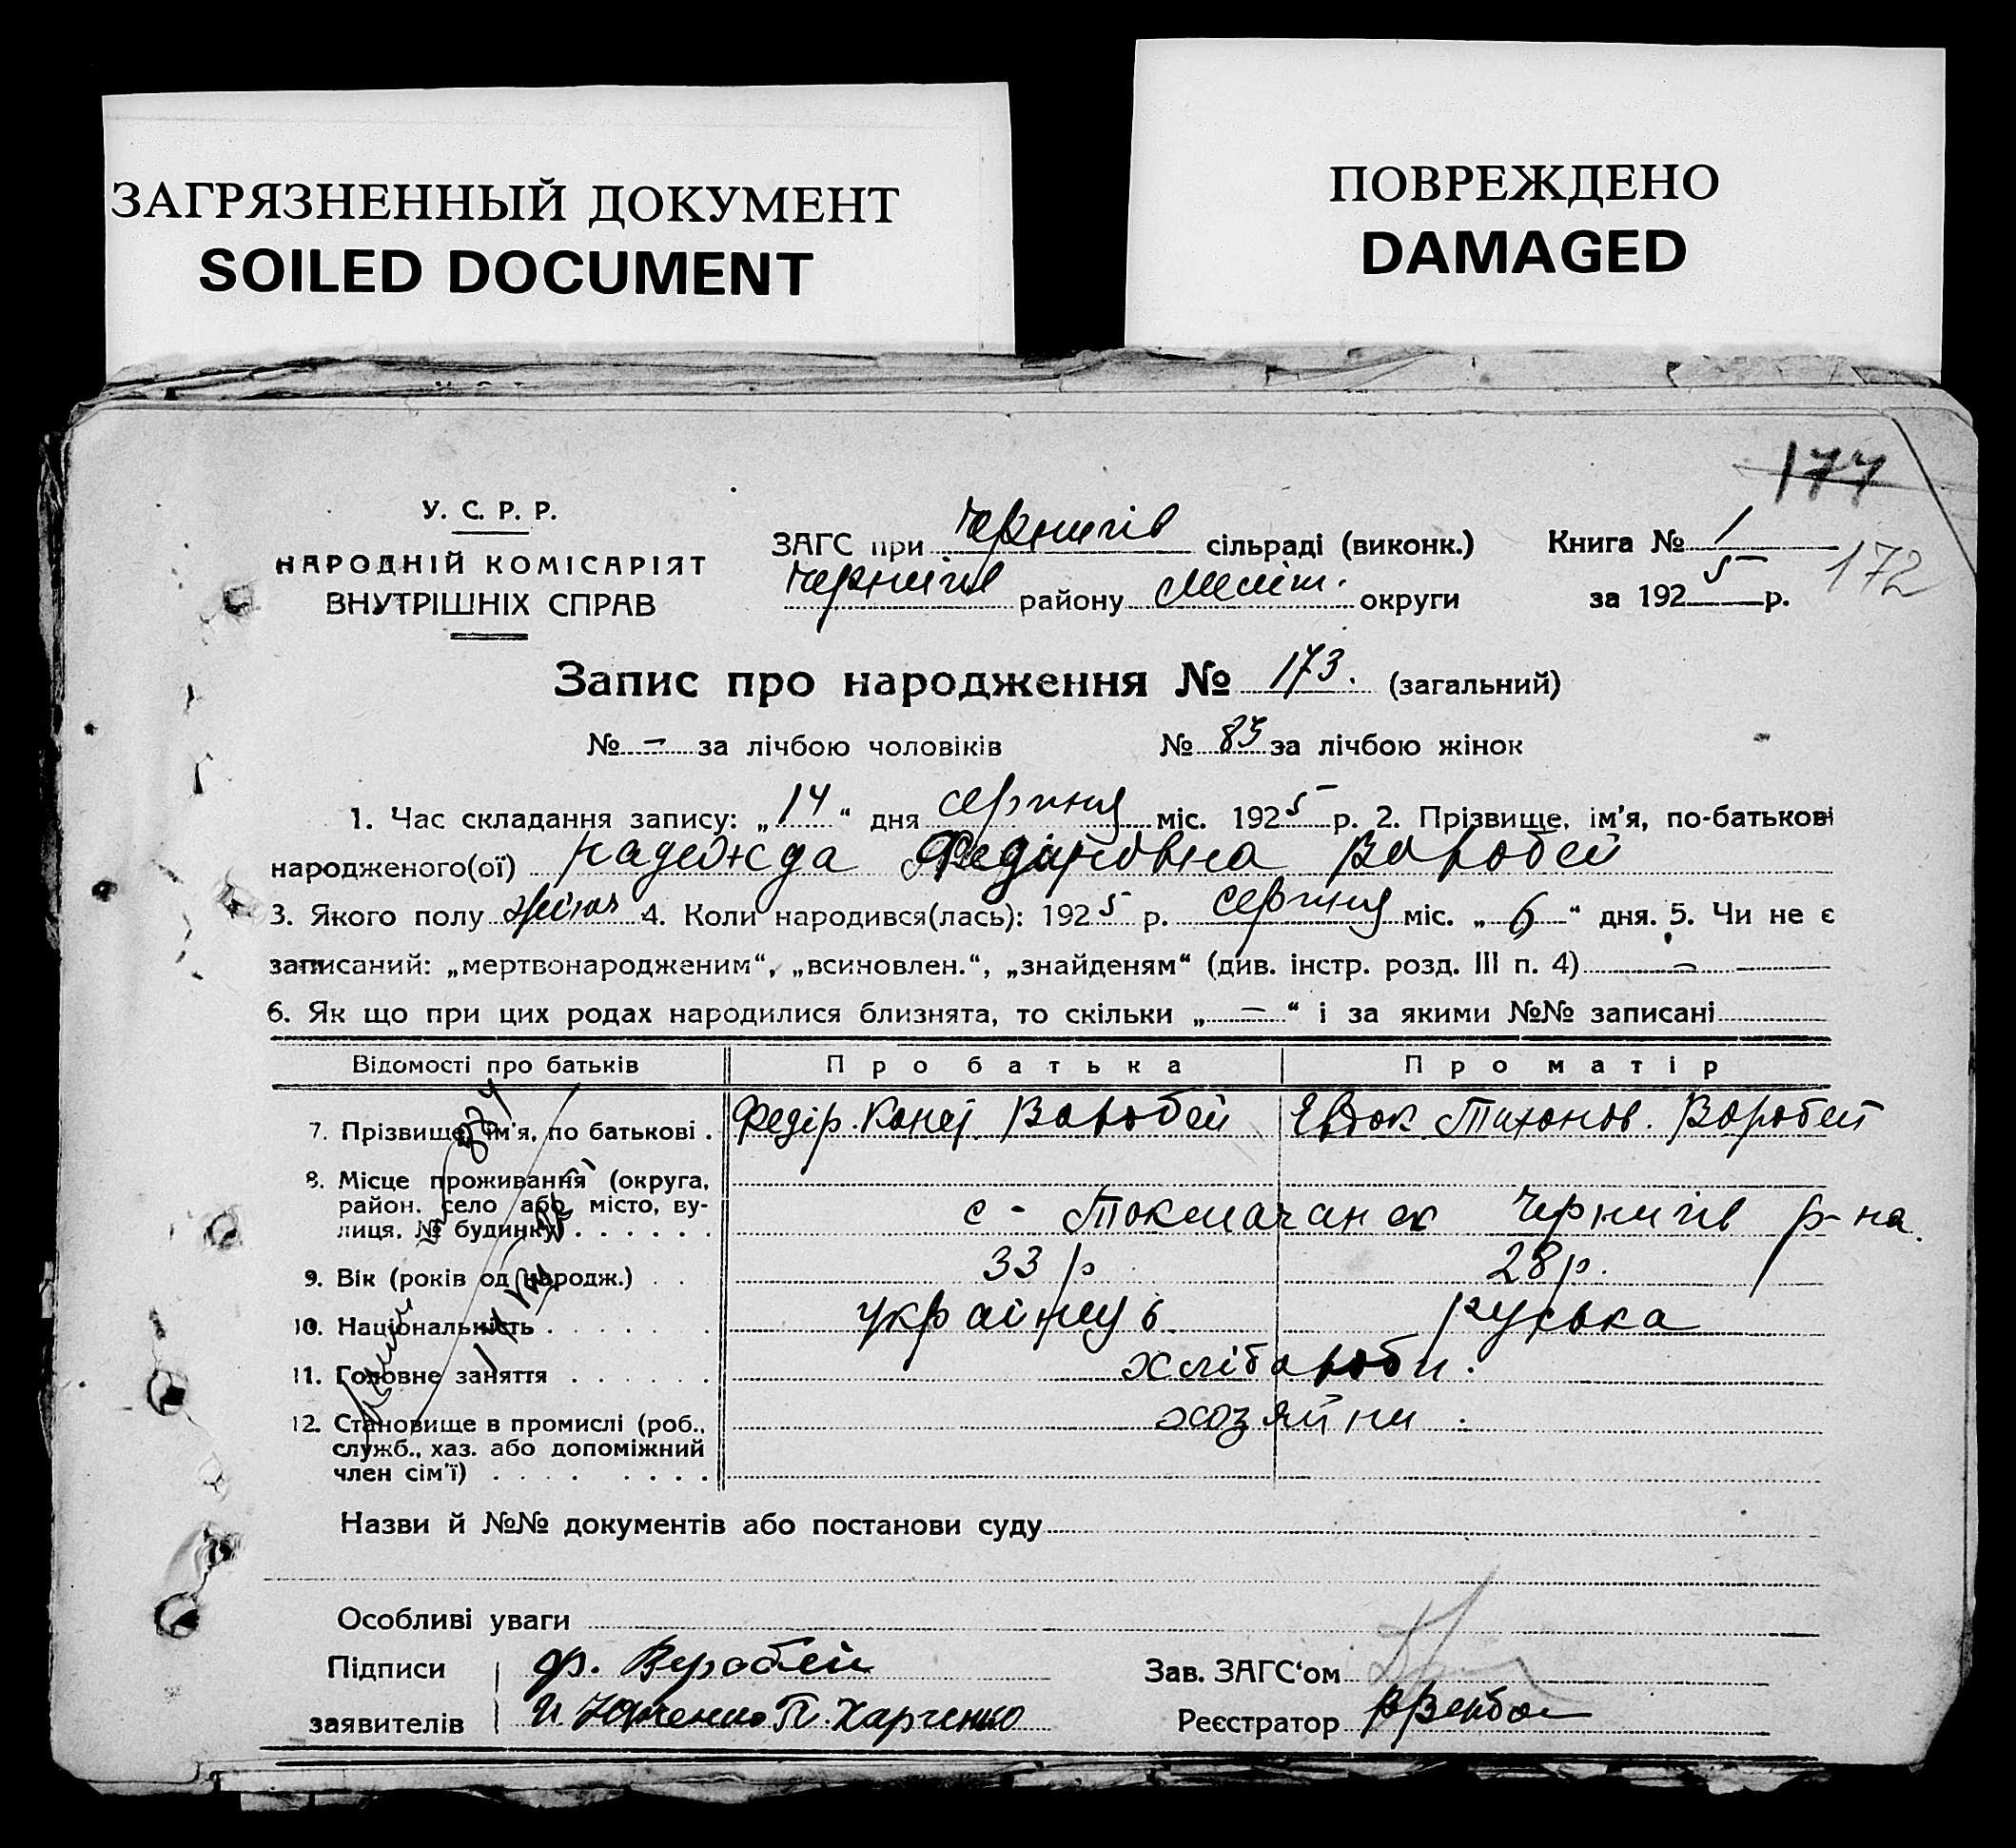 ЗАГРЯЗНЕННЫЙ ДОКУМЕНТ
SOILED DOCUMENT
ПОВРЕЖДЕНО
DAMAGED
177
У. С. Р. Р.
НАРОДНІЙ КОМІСАРІЯТ
ВНУТРІШНІХ СПРАВ
ЗАГС при Чернигів сільраді (виконк.)
Чернигів району Меліт. округи
Книга № 1
172
за 1925 р.
Запис про народження № 173. (загальний)
№ – за лічбою чоловіків № 85 за лічбою жінок
1. Час складання запису: „14“ дня серпня міс. 1925 р. 2. Прізвище, ім'я, по-батькові
народженого(ої) Надежда Федіровна Воробей
3. Якого полу жіноч 4. Коли народився(лась): 1925 р. серпня міс. „6“ дня. 5. Чи не є
записаний: „мертвонародженим“, „всиновлен.“, „знайденям“ (див. інстр. розд. III п. 4) –
6. Як що при цих родах народилися близнята, то скільки „–“ і за якими №№ записані
Відомості про батьків Про батька Про матір
7. Прізвище, ім'я, по батькові . Федір. Воробей Евдок Тихонов. Воробей
8. Місце проживання (округа,
район, село або місто, ву-
лиця, № будинку) . . . . . . с - Токмачанск Чернигів р-на.
9. Вік (років од народж.) . . 33 р 28 р.
10. Національність . . . . . . українць руська
11. Головне заняття . . . . . . хлібороби.
12. Становище в промислі (роб., хозяйни.
служб., хаз. або допоміжний
член сім'ї) . . . . . . . .
Назви й №№ документів або постанови суду
Особливі уваги
Підписи ф. Воробей Зав. ЗАГС'ом
заявителів П. Харченко Реєстратор